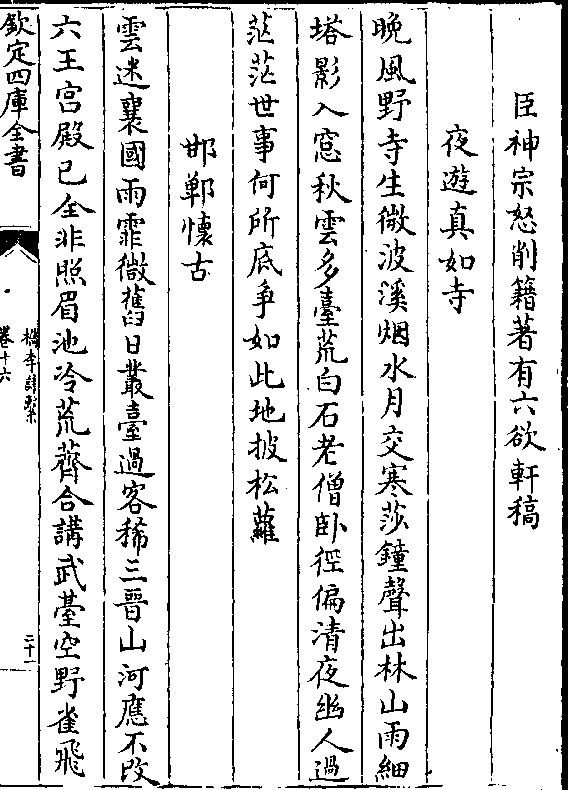 臣神宗怒削籍著有六欲軒稿
夜遊真如寺
晚風野寺生微波溪烟水月交寒莎鐘聲出林山雨細
塔影入窓秋雲多臺荒白石老僧卧徑偏清夜幽人過
茫茫世事何所底爭如此地披松蘿
邯鄲懷古
雲迷襄國雨霏微舊日叢臺過客稀三晉山河應不改
六王宫殿已全非照眉池冷荒薺合講武臺空野雀飛
欽定四庫全書
檇李詩繫
卷十六
二十一